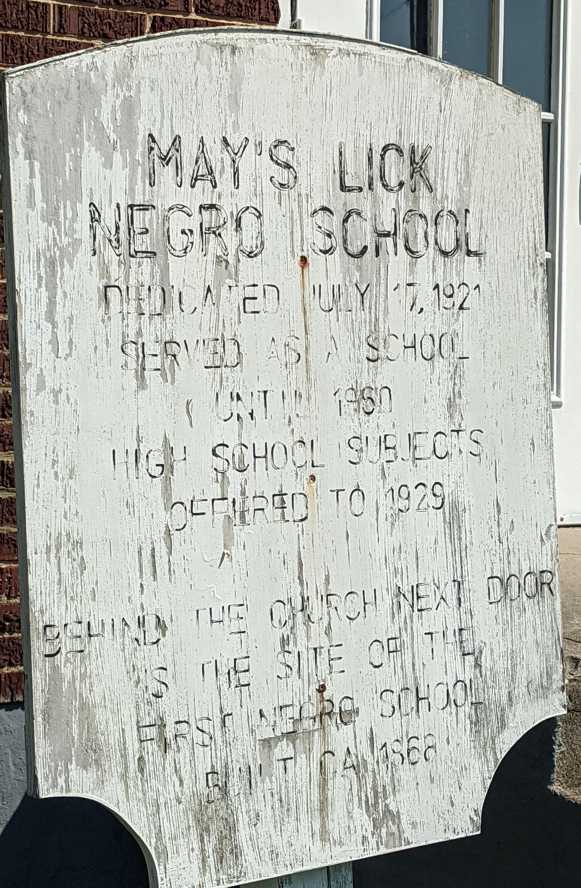 MAY'S LICK
NEGRO SCHOOL
DEDICATED JULY 17, 1921
SERVED AS A SCHOOL
UNTIL 1960
HIGH SCHOOL SUBJECTS
OFFERED TO 1929
BEHIND THE CHURCH NEXT DOOR
IS THE SITE OF THE
FIRST NEGRO SCHOOL
BUILT CA 1868